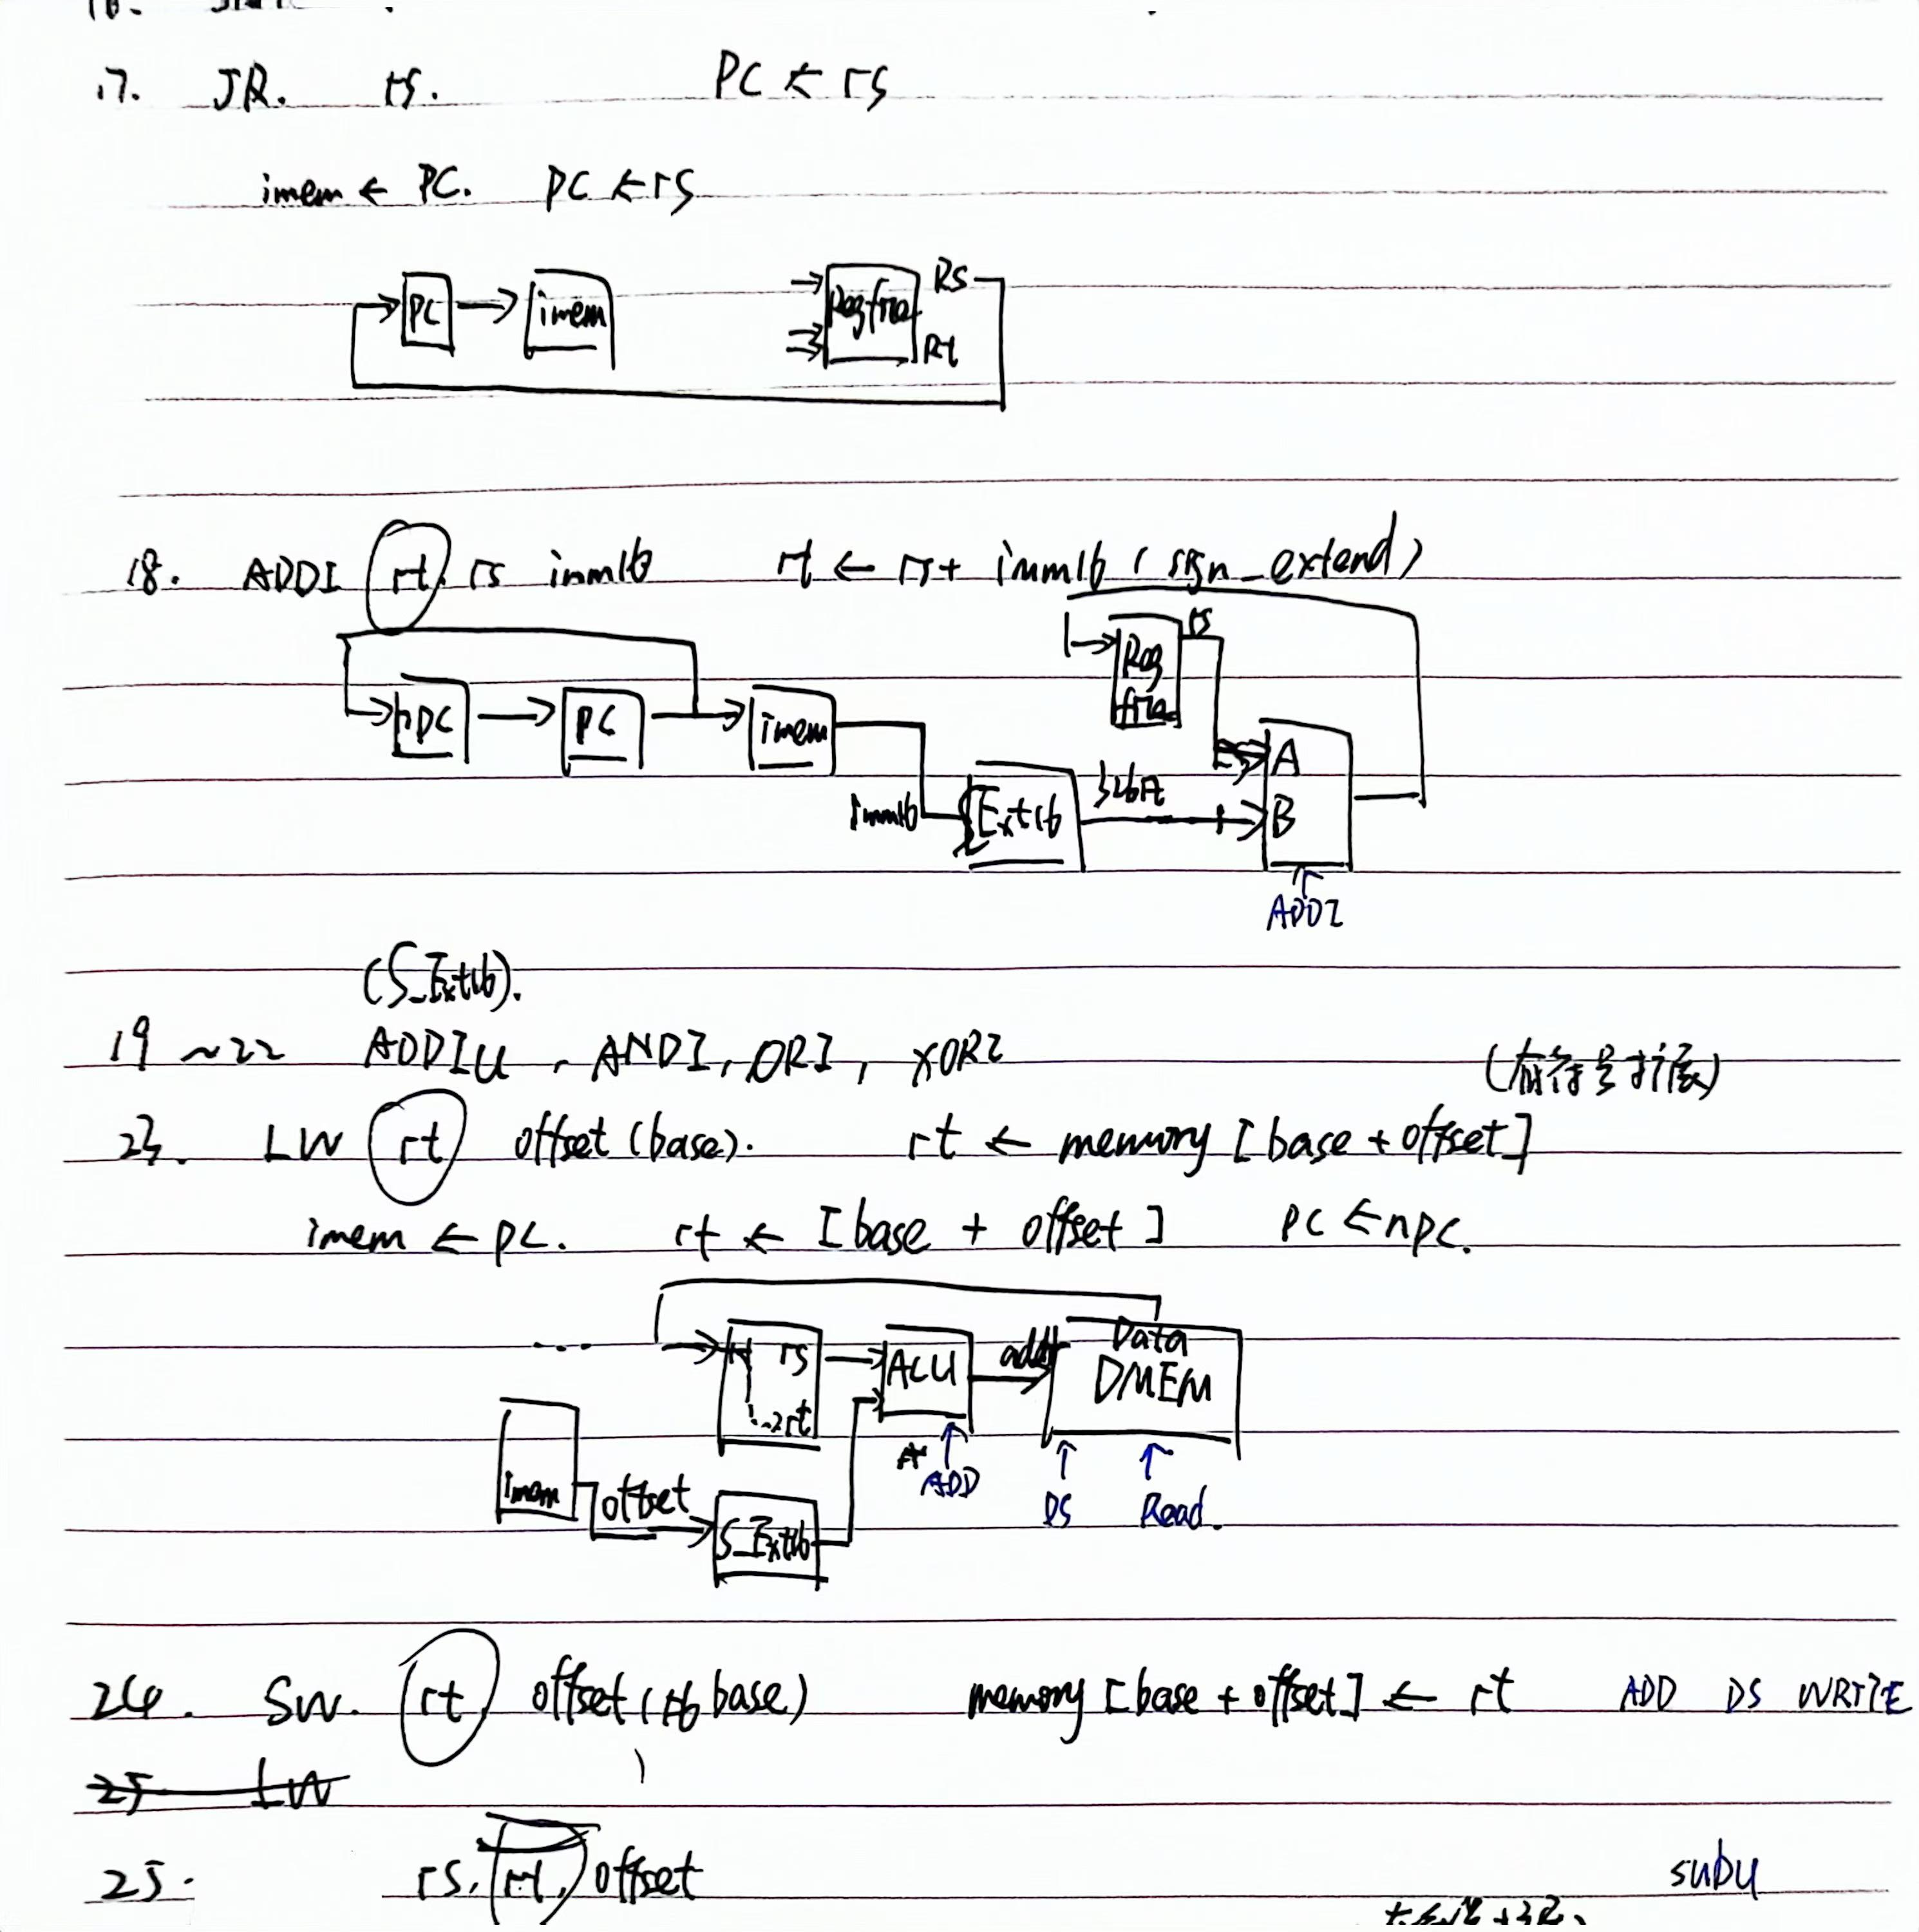 17. JR. rs. PC ← rs
imem ← PC. PC ← rs
PC imem Regfile Rs Rt
18. ADDI rt, rs imm16 rt ← rs + imm16 (sign_extend)
Reg file rs
npc PC imem A
imm16 Ext16 32bit B
ADDI
(S_Ext16).
19 ~ 22 ADDIU, ANDI, ORI, XORI
(有符号扩展)
23. LW rt offset (base). rt ← memory [base + offset]
imem ← pc. rt ← [base + offset] PC ← npc.
.... rs ALU addr Data
DMEM
rt
imem offset ADD DS Read.
S_Ext16
24. SW. rt, offset (base) memory [base + offset] ← rt ADD DS WRITE
25 LW
25. rs, rt, offset subu